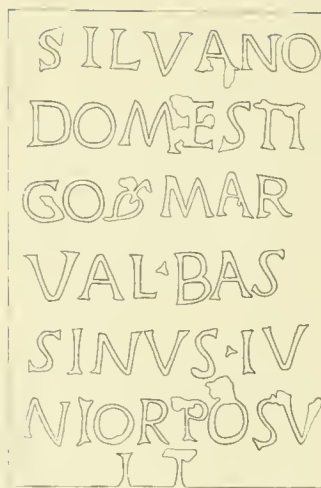 SILVANO
DOMESTI
GO MAR
VAL·BAS
SINVS·IV
NIORPOSV
IT